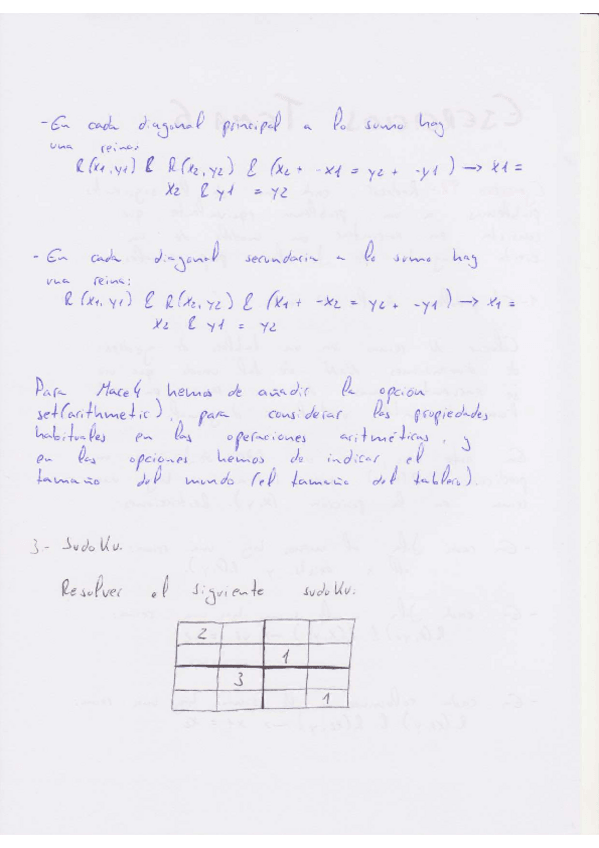 - En cada diagonal principal a lo sumo hay
una reina:
R(x1,y1) & R(x2,y2) & (x2 + -x1 = y2 + -y1) → x1 =
x2 & y1 = y2
- En cada diagonal secundaria a lo sumo hay
una reina:
R(x1,y1) & R(x2,y2) & (x1 + -x2 = y2 + -y1) → x1 =
x2 & y1 = y2
Para Mace4 hemos de añadir la opcion
set(arithmetic), para considerar las propiedades
habituales en las operaciones aritméticas, y
en las opciones hemos de indicar el
tamaño del mundo (el tamaño del tablero).
3- Sudoku.
Resolver el siguiente sudoku.
2
1
3
1